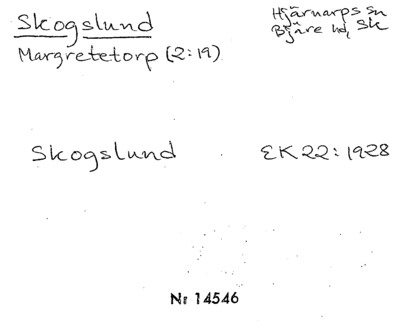 Skogslund
Margretetorp (2:19)
Hjärnarps sn
Bjäre hd, Sk
Skogslund
EK 22: 1928
Nr 14546